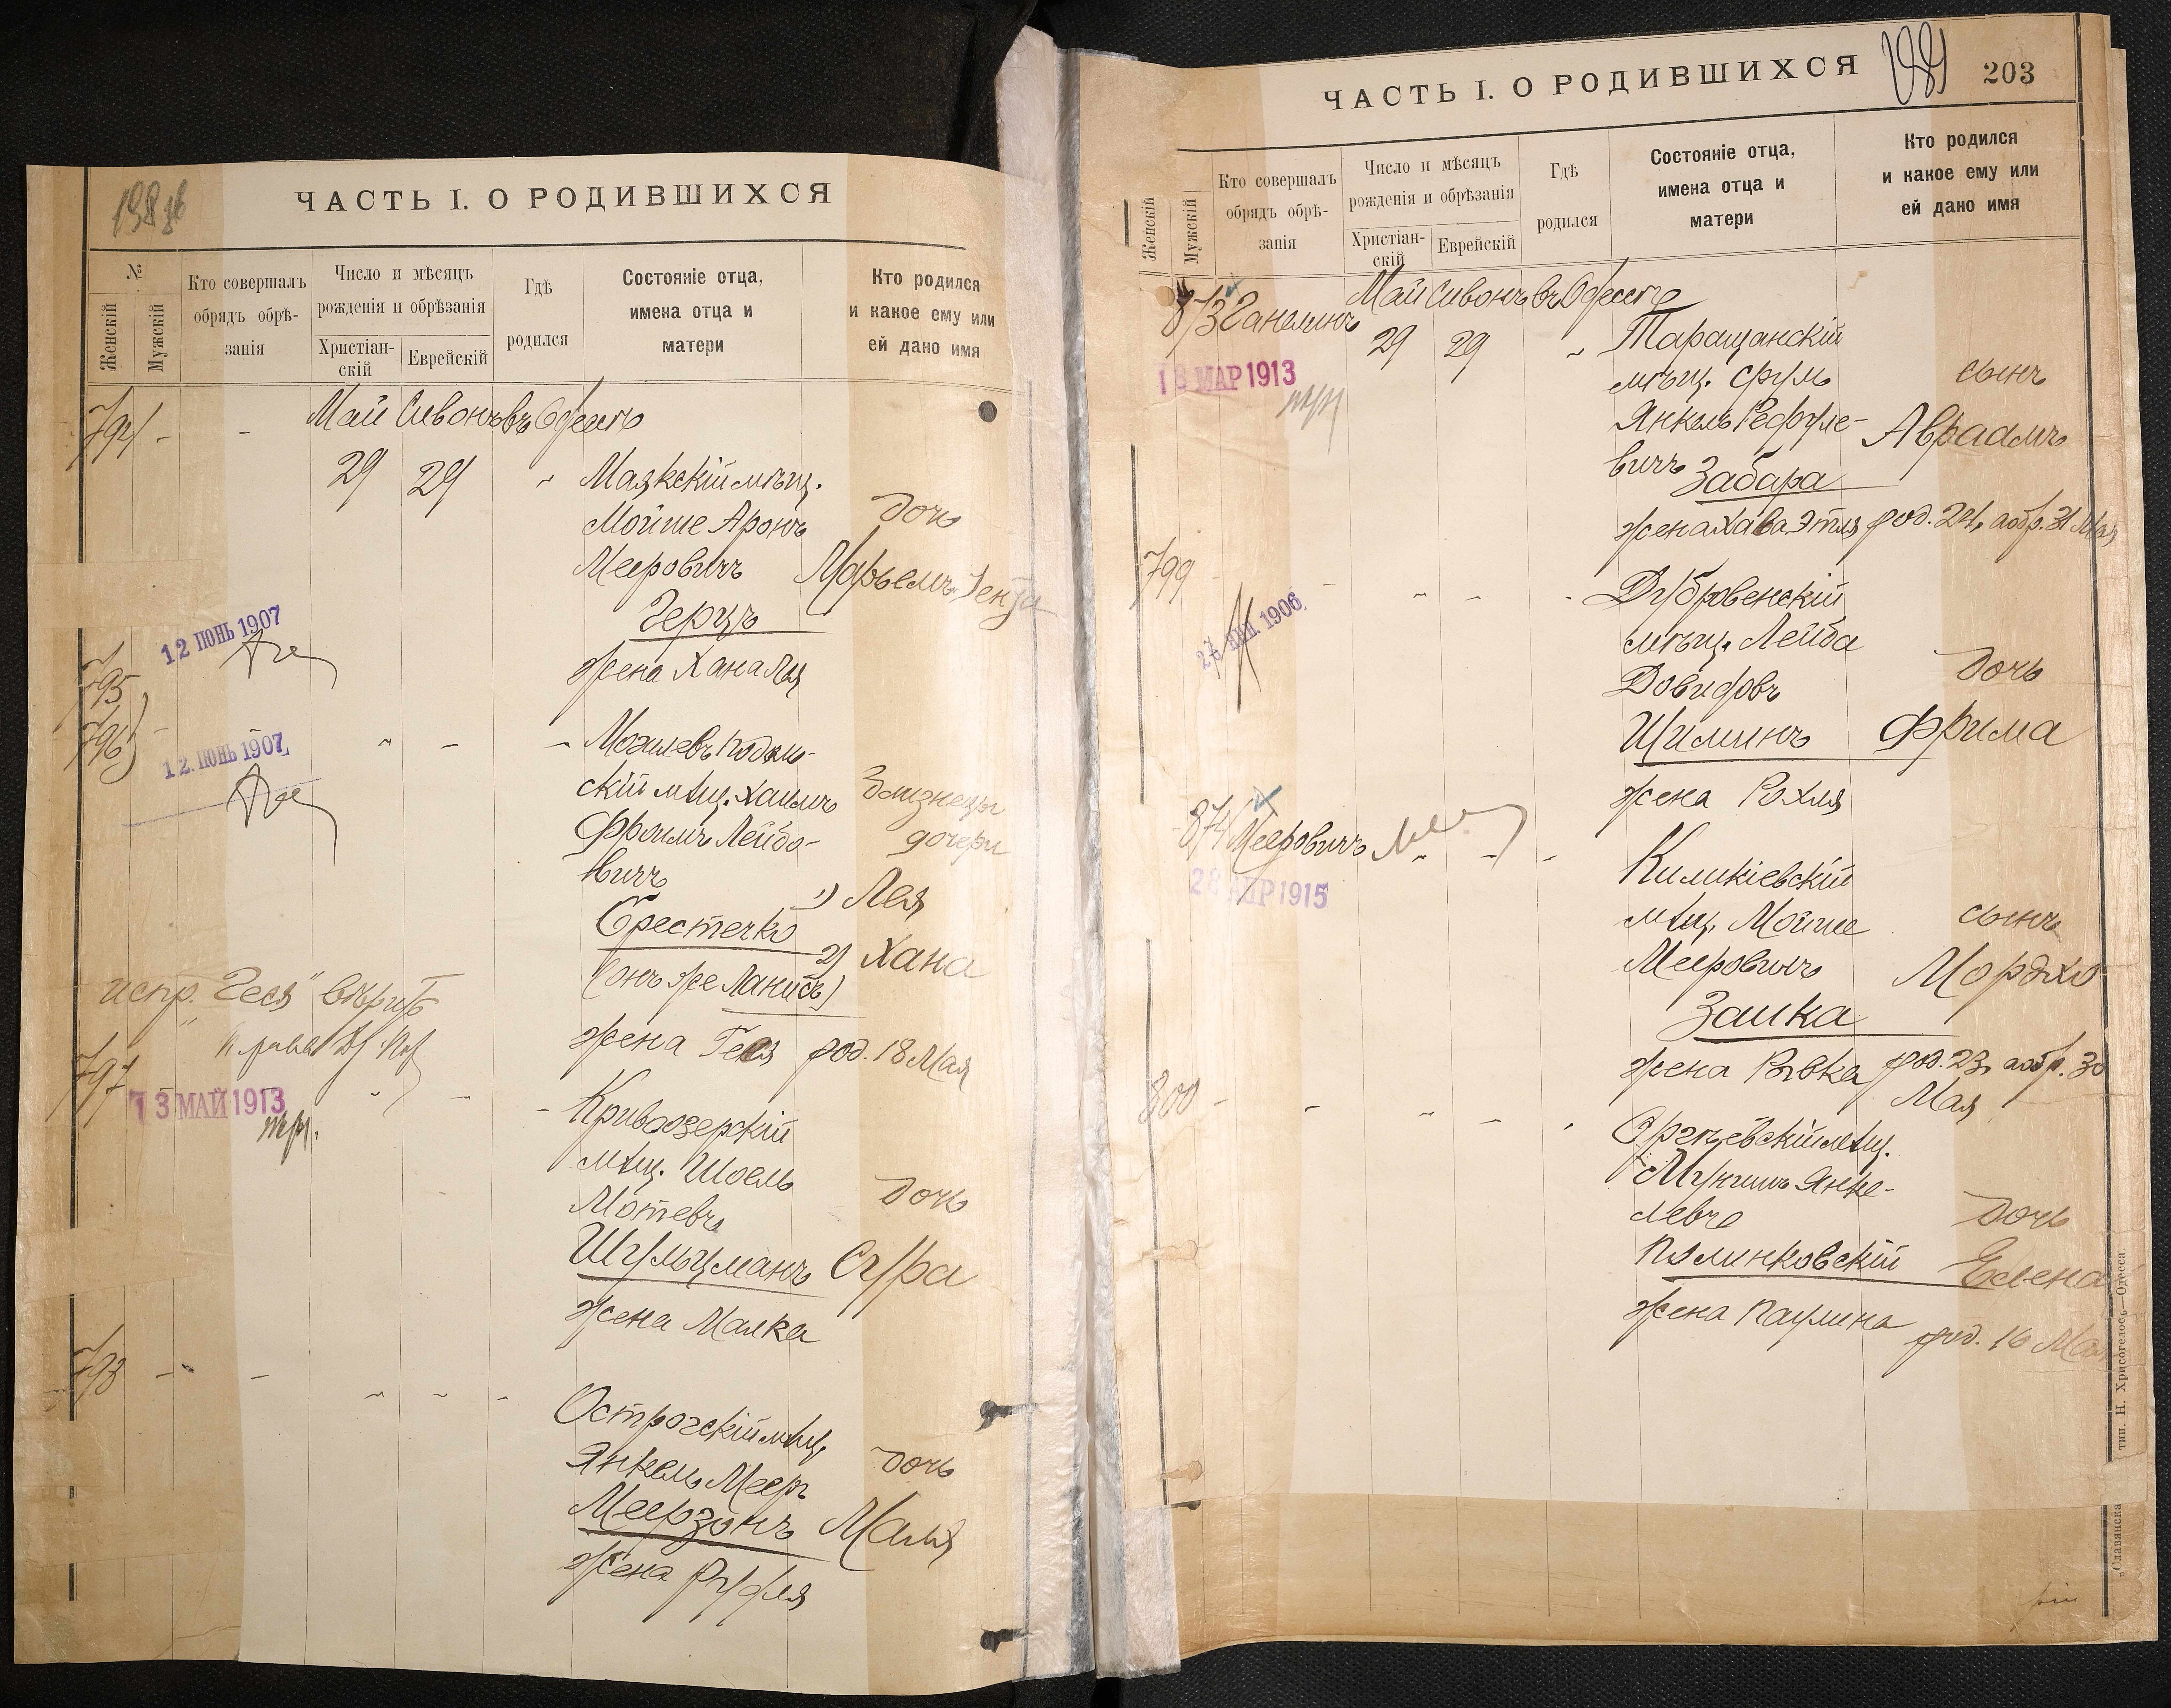 ЧАСТЬ I. О РОДИВШИХСЯ
№
Женскій
Мужскій
Кто совершалъ
обрядъ обрѣ-
занія
Число и мѣсяцъ
рожденія и обрѣзанія
Христіан-
скій
Еврейскій
Гдѣ
родился
Состояніе отца,
имена отца и
матери
Кто родился
и какое ему или
ей дано имя
794 - -
Май Сивонъ въ Одессѣ
29 29 " Маякскій мѣщ.
Мойше Аронъ дочь
Мееровичъ Марьемъ
Герцъ
жена Хана Лея
12 ІЮНЬ 1907
795
796
12 ІЮНЬ 1907
" - - Могилевъ подоль-
скій мѣщ. Хаимъ Близнецы
Фроимъ Лейбо- дочери
вичъ 1) Лея
Брестечко 2) Хана
(онъ же Ланисъ)
жена Геся род. 18 Мая
испр. "Геся" вѣрить
797
13 МАЙ 1913
Кривоозерскій
мѣщ. Шоель
Мотевъ дочь
Шульцманъ Сура
жена Малка
798 - -
" " - Острогскій мѣщ.
Янкель Мееръ дочь
Меерзонъ Маля
жена Рухля
ЧАСТЬ I. О РОДИВШИХСЯ
203
Женскій
Мужскій
Кто совершалъ
обрядъ обрѣ-
занія
Число и мѣсяцъ
рожденія и обрѣзанія
Христіан-
скій
Еврейскій
Гдѣ
родился
Состояніе отца,
имена отца и
матери
Кто родился
и какое ему или
ей дано имя
873 Ганелинъ Май Сивонъ въ Одессѣ
29 29 " Таращанскій
мѣщ. Сруль сынъ
18 МАР 1913
Янкель Рефуле- Авраамъ
вичъ Забара
жена Хава Этля род. 24, а обр. 31 Мая
799
1906
Дубровенскій
мѣщ. Лейба
Довидовъ дочь
Шилинъ Фрима
жена Рохля
874 Мееровичъ
28 АПР 1915
Киликіевскій
мѣщ. Мойше сынъ
Мееровичъ Мордхо
Заика
жена Ривка род. 23, а обр. 30
Мая
800 - -
Оргѣевскій мѣщ.
Мунишъ Янке-
левъ дочь
Полинковскій Елена
жена Паулина
род. 16 Мая
„Славянская
тип. Н. Хрисогелосъ—Одесса.